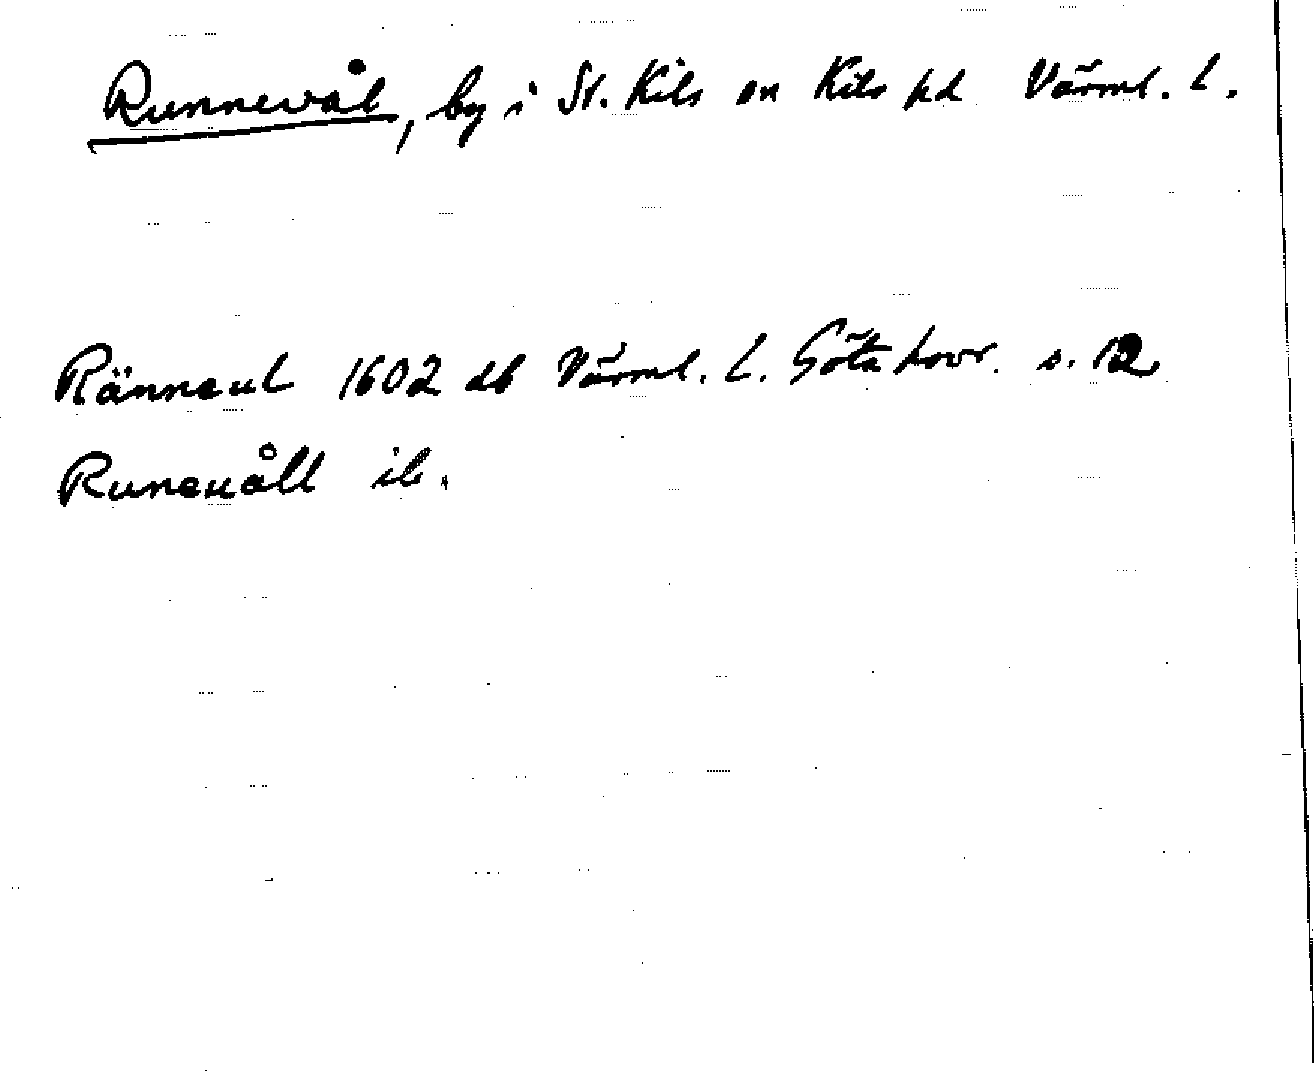 Runnevål, by i St. Kils sn Kils hd Värml. L.
Ränneul 1602 db Värml. L. Göta hovr. s. 12
Runeuåll ib.